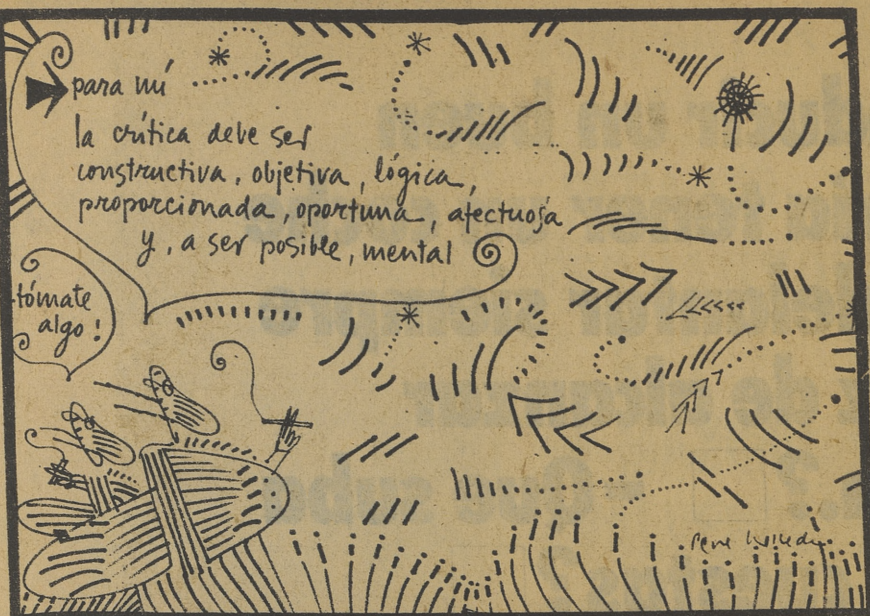 para mí
la crítica debe ser
constructiva, objetiva, lógica,
proporcionada, oportuna, afectuosa
y, a ser posible, mental
tómate
algo!